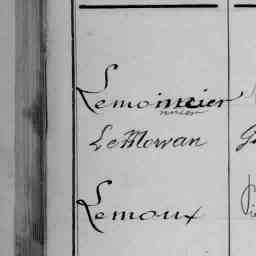 Lemoinnier
nnier
Le Morvan
Lemoux